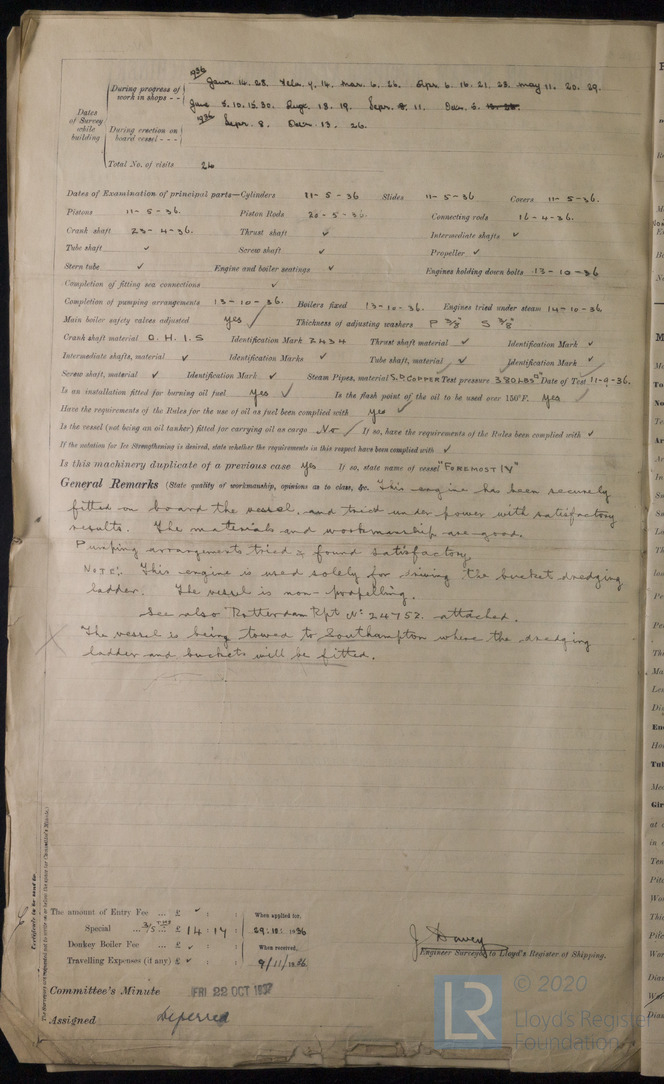 1936 Janr. 14. 28. Feb. 4. 14. Mar. 6. 26. Apr. 6. 16. 21. 23. May 11. 20. 29.
During progress of work in shops - -
June 5. 10. 15. 30. Aug. 18. 19. Sepr. 8. 11. Oct. 5.
Dates of Survey while building
During erection on board vessel - - -
1936 Sepr. 8. Octr. 13. 26.
Total No. of visits 26
Dates of Examination of principal parts—Cylinders 11-5-36 Slides 11-5-36 Covers 11-5-36.
Pistons 11-5-36. Piston Rods 20-5-36. Connecting rods 16-4-36.
Crank shaft 23-4-36 Thrust shaft ✓ Intermediate shafts ✓
Tube shaft ✓ Screw shaft ✓ Propeller ✓
Stern tube ✓ Engine and boiler seatings ✓ Engines holding down bolts 13-10-36
Completion of fitting sea connections ✓
Completion of pumping arrangements 13-10-36. Boilers fixed 13-10-36. Engines tried under steam 14-10-36
Main boiler safety valves adjusted yes ✓ Thickness of adjusting washers P 3/8" S 3/8"
Crank shaft material O.H.I.S Identification Mark 2434 Thrust shaft material ✓ Identification Mark ✓
Intermediate shafts, material ✓ Identification Marks ✓ Tube shaft, material ✓ Identification Mark ✓
Screw shaft, material ✓ Identification Mark ✓ Steam Pipes, material S.D COPPER Test pressure 380 LBS □" Date of Test 11-9-36.
Is an installation fitted for burning oil fuel yes ✓ Is the flash point of the oil to be used over 150°F. yes
Have the requirements of the Rules for the use of oil as fuel been complied with yes ✓
Is the vessel (not being an oil tanker) fitted for carrying oil as cargo No If so, have the requirements of the Rules been complied with ✓
If the notation for Ice Strengthening is desired, state whether the requirements in this respect have been complied with ✓
Is this machinery duplicate of a previous case yes If so, state name of vessel "FOREMOST IV"
General Remarks (State quality of workmanship, opinions as to class, &c. This engine has been securely
fitted on board the vessel, and tried under power with satisfactory
results. The materials and workmanship are good.
Pumping arrangements tried & found satisfactory.
NOTE:. This engine is used solely for driving the bucket dredging
ladder. The vessel is non-propelling.
See also Rotterdam Rpt No 24752. attached.
The vessel is being towed to Southampton where the dredging
ladder and buckets will be fitted.
The amount of Entry Fee ... £ ✓ : :
Special ... £ 14 : 17 :
Donkey Boiler Fee ... £ ✓ : :
Travelling Expenses (if any) £ ✓ : :
When applied for,
29.10.1936
When received,
9/11/1936
J. Davey
Engineer Surveyor to Lloyd's Register of Shipping.
Committee's Minute FRI 22 OCT 1937
Assigned Deferred
LR
© 2020
Lloyd's Register
Foundation